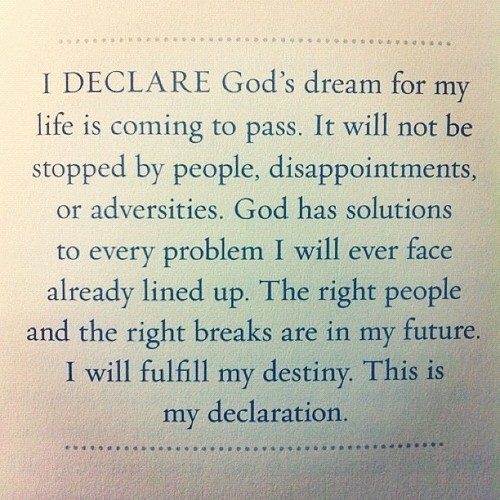 I DECLARE God's dream for my
life is coming to pass. It will not be
stopped by people, disappointments,
or adversities. God has solutions
to every problem I will ever face
already lined up. The right people
and the right breaks are in my future.
I will fulfill my destiny. This is
my declaration.